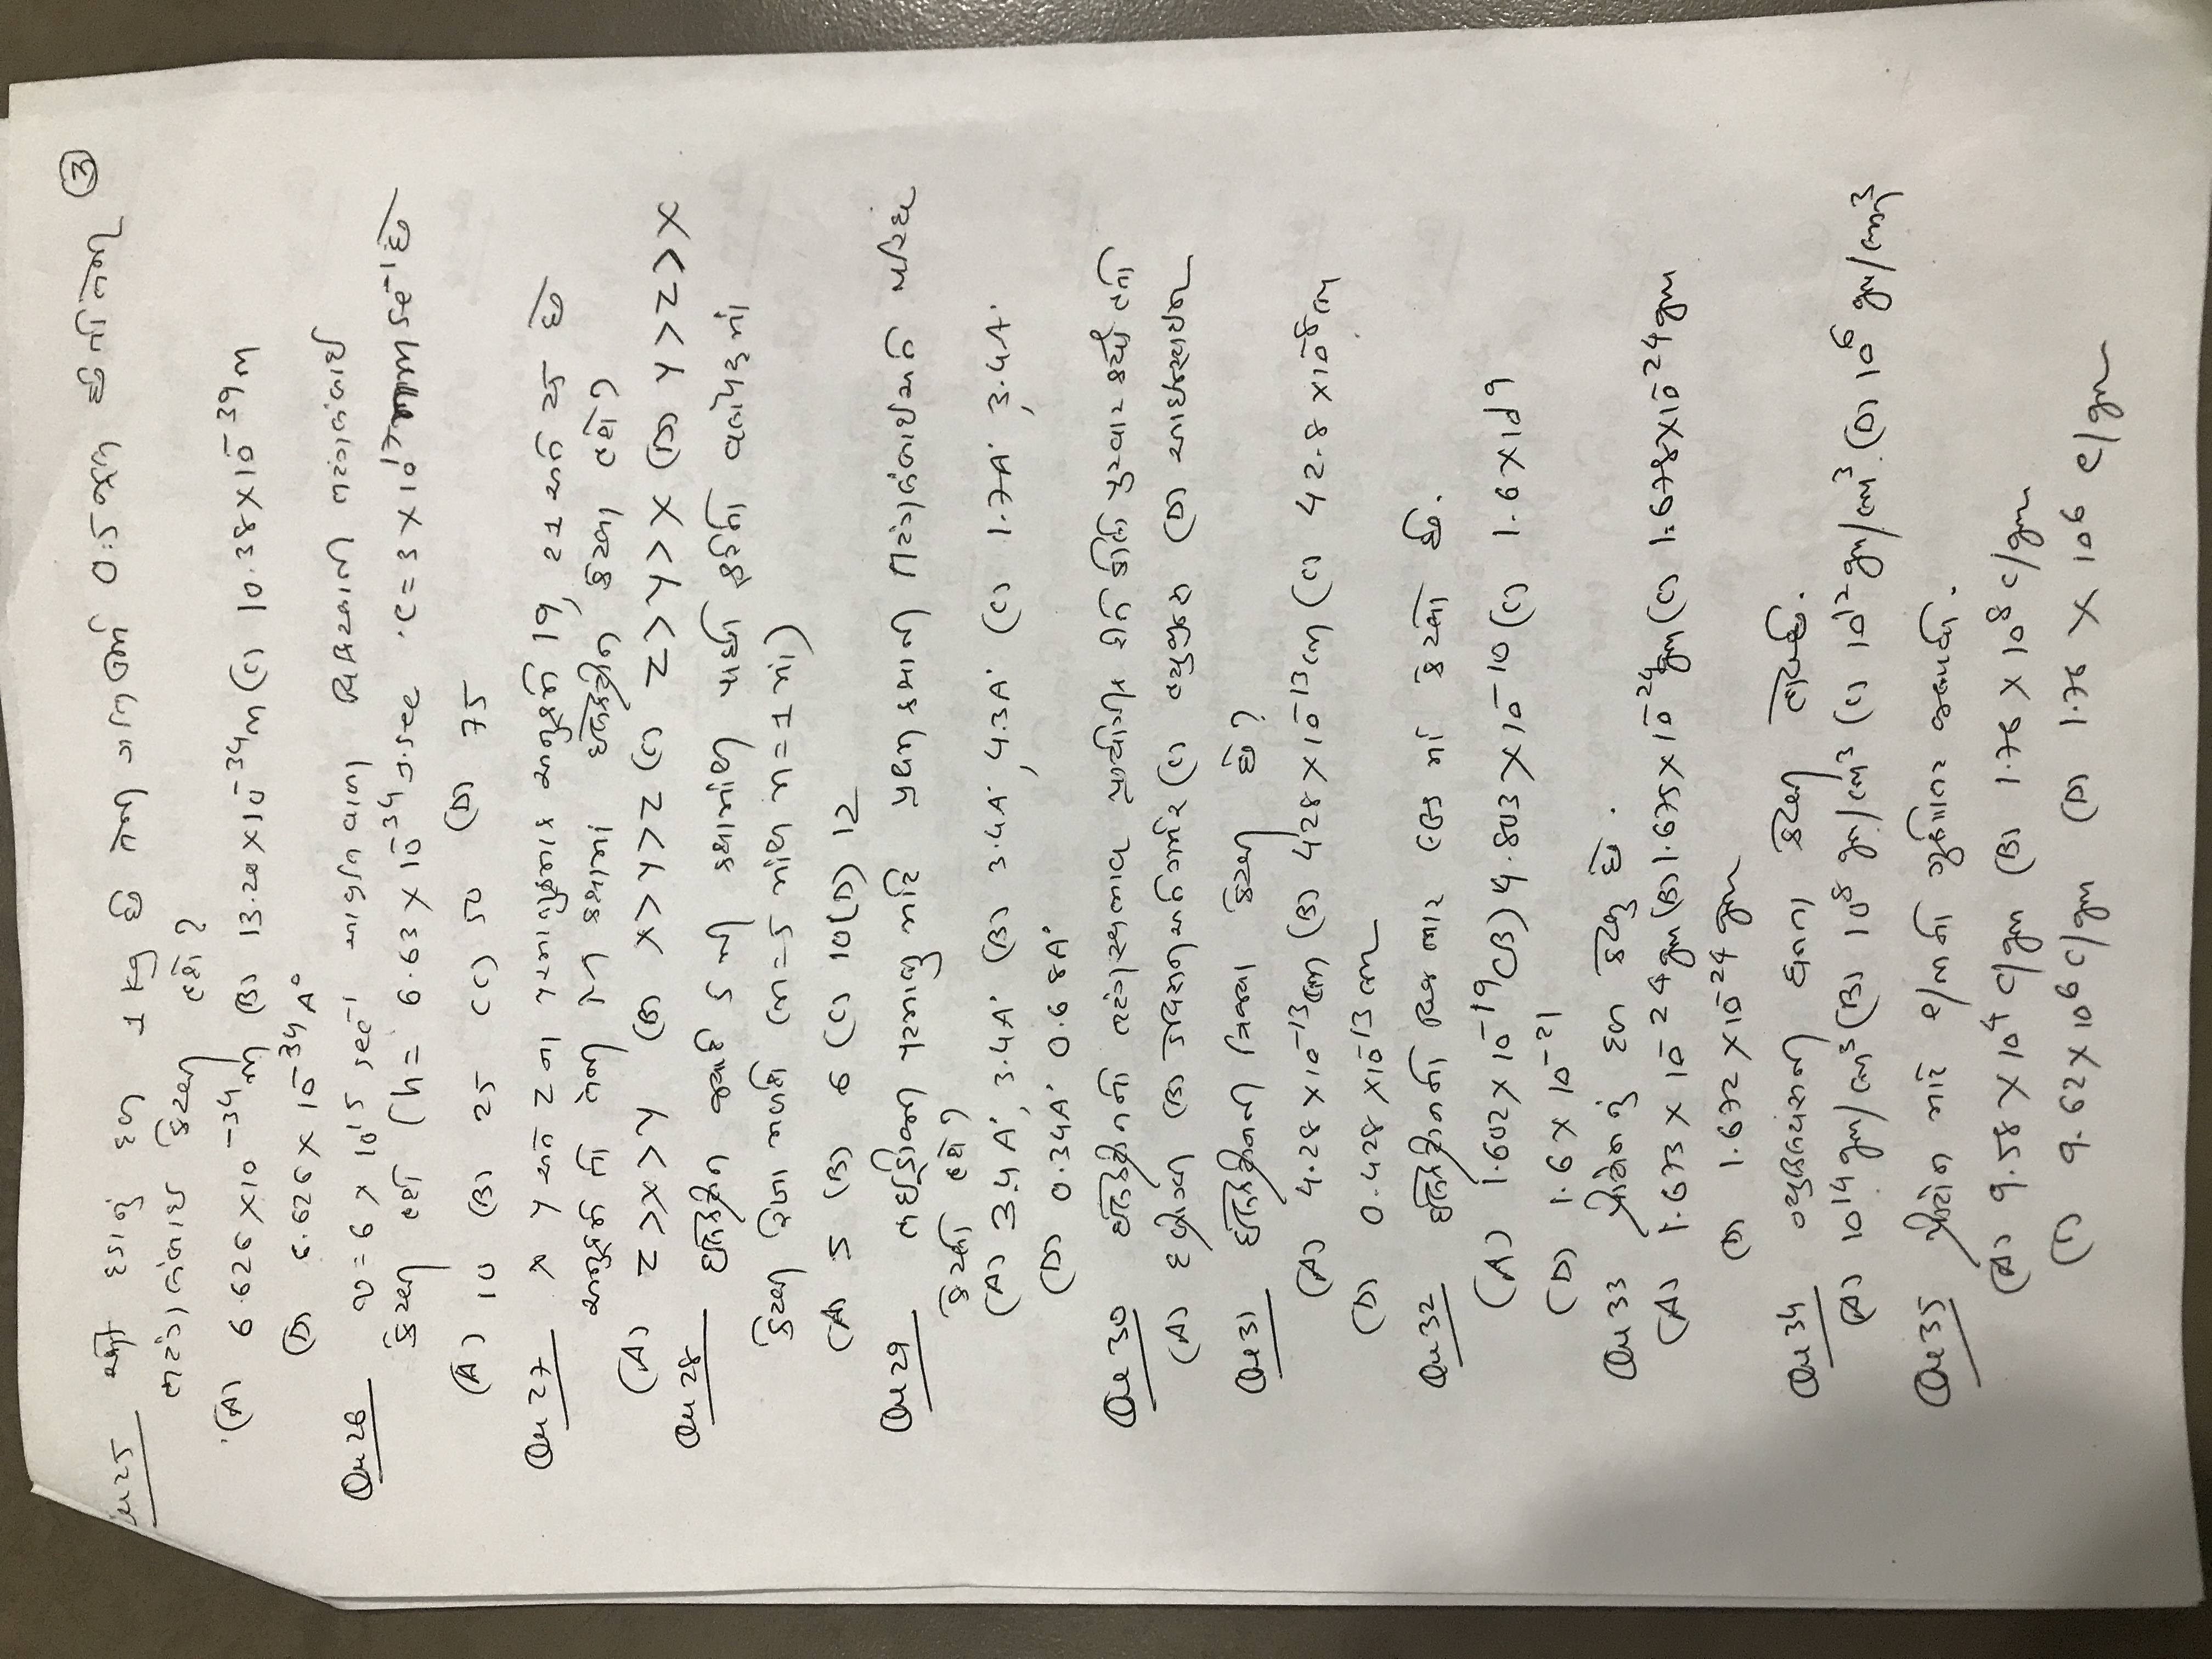 ③
Qu 25 એક દડાનું દળ 1 kg છે તેના ગતિઊર્જા 0.5 જૂલ છે તો તેની
તરંગલંબાઇ કેટલી હશે?
(A) 6.626 × 10⁻³⁴ m (B) 13.20 × 10⁻³⁴ m (C) 10.38 × 10⁻³⁹ m
(D) 6.626 × 10⁻³⁴ A°
Qu 26 υ = 6 × 10¹⁵ sec⁻¹ આવૃતિ વાળા વિકિરણની તરંગલંબાઇ
કેટલી હશે (h = 6.63 × 10⁻³⁴ J.sec . C = 3 × 10¹⁷ nm sec⁻¹ છે
(A) 10 (B) 25 (C) 50 (D) 75
Qu 27 X Y અને Z ના પરમાણુક્રમાંક અનુક્રમે 19, 21 અને 25 છે
અનુક્રમે તો તેના M કક્ષામાં ઇલેકટ્રોન કેટલા હશે?
(A) Z > X > Y (B) X > Y > Z (C) Z > Y > X (D) Y > Z > X
Qu 28 ઇલેકટ્રોન જ્યારે 5 મી કક્ષામાંથી પાછો ફરતો વર્ણપટમાં
કેટલી રેખા મળશે (n = 5 માંથી n = 1 માં)
(A) 5 (B) 6 (C) 10 (D) 12
Qu 29 હાઇડ્રોજન પરમાણુ માટે પ્રથમ કક્ષાની તરંગલંબાઇ અને પરિઘ
કેટલો હશે?
(A) 3.4 A°, 3.4 A° (B) 3.4 A°, 4.3 A° (C) 1.7 A°, 3.4 A°
(D) 0.34 A° 0.68 A°
Qu 30 ઇલેકટ્રોનનો તરંગસ્વભાવ પ્રાયોગિક રીતે કોણે પુરવાર કર્યો હતો
(A) દ બ્રોગ્લી (B) ડેવિસન અને ગર્મર (C) લ્યુઇસ (D) આઇન્સ્ટાઇન
Qu 31 ઇલેકટ્રોનની ત્રિજ્યા કેટલી છે?
(A) 4.28 × 10⁻¹³ cm (B) 428 × 10⁻¹³ cm (C) 42.8 × 10⁻⁸ cm
(D) 0.428 × 10⁻¹³ cm
Qu 32 ઇલેકટ્રોનનો વિજભાર esu માં કેટલો છે.
(A) 1.602 × 10⁻¹⁹ (B) 4.803 × 10⁻¹⁰ (C) 1.6 × 10⁹
(D) 1.6 × 10⁻²¹
Qu 33 પ્રોટોનનું દળ કેટલું છે.
(A) 1.673 × 10⁻²⁴ gm (B) 1.675 × 10⁻²⁴ gm (C) 1.678 × 10⁻²⁴ gm
(D) 1.672 × 10⁻²⁴ gm
Qu 34 ન્યુક્લિયસની ઘનતા કેટલી હોય છે.
(A) 10¹⁴ gm/cm³ (B) 10⁸ gm/cm³ (C) 10¹² gm/cm³ (D) 10⁶ gm/cm³
Qu 35 પ્રોટોન માટે e/m નો ગુણોત્તર જણાવો.
(A) 9.58 × 10⁴ C/gm (B) 1.76 × 10⁸ C/gm
(C) 9.62 × 10⁶ C/gm (D) 1.76 × 10⁶ C/gm